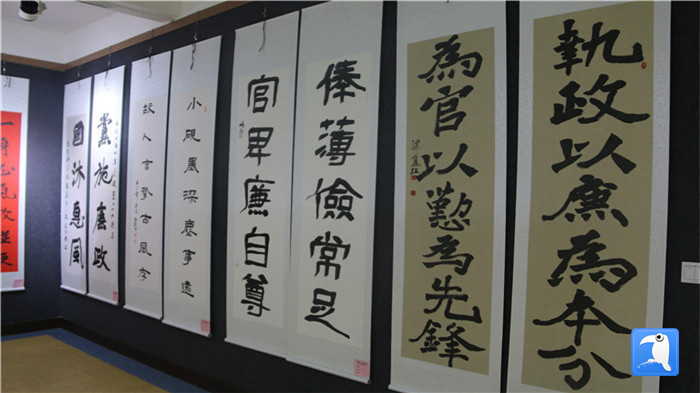 執政以廉為本分
為官以懃為先鋒
俸薄儉常足
官卑廉自尊
小深塵事遠
故人古風存
黨施廉政
國沐惠風
一身正氣